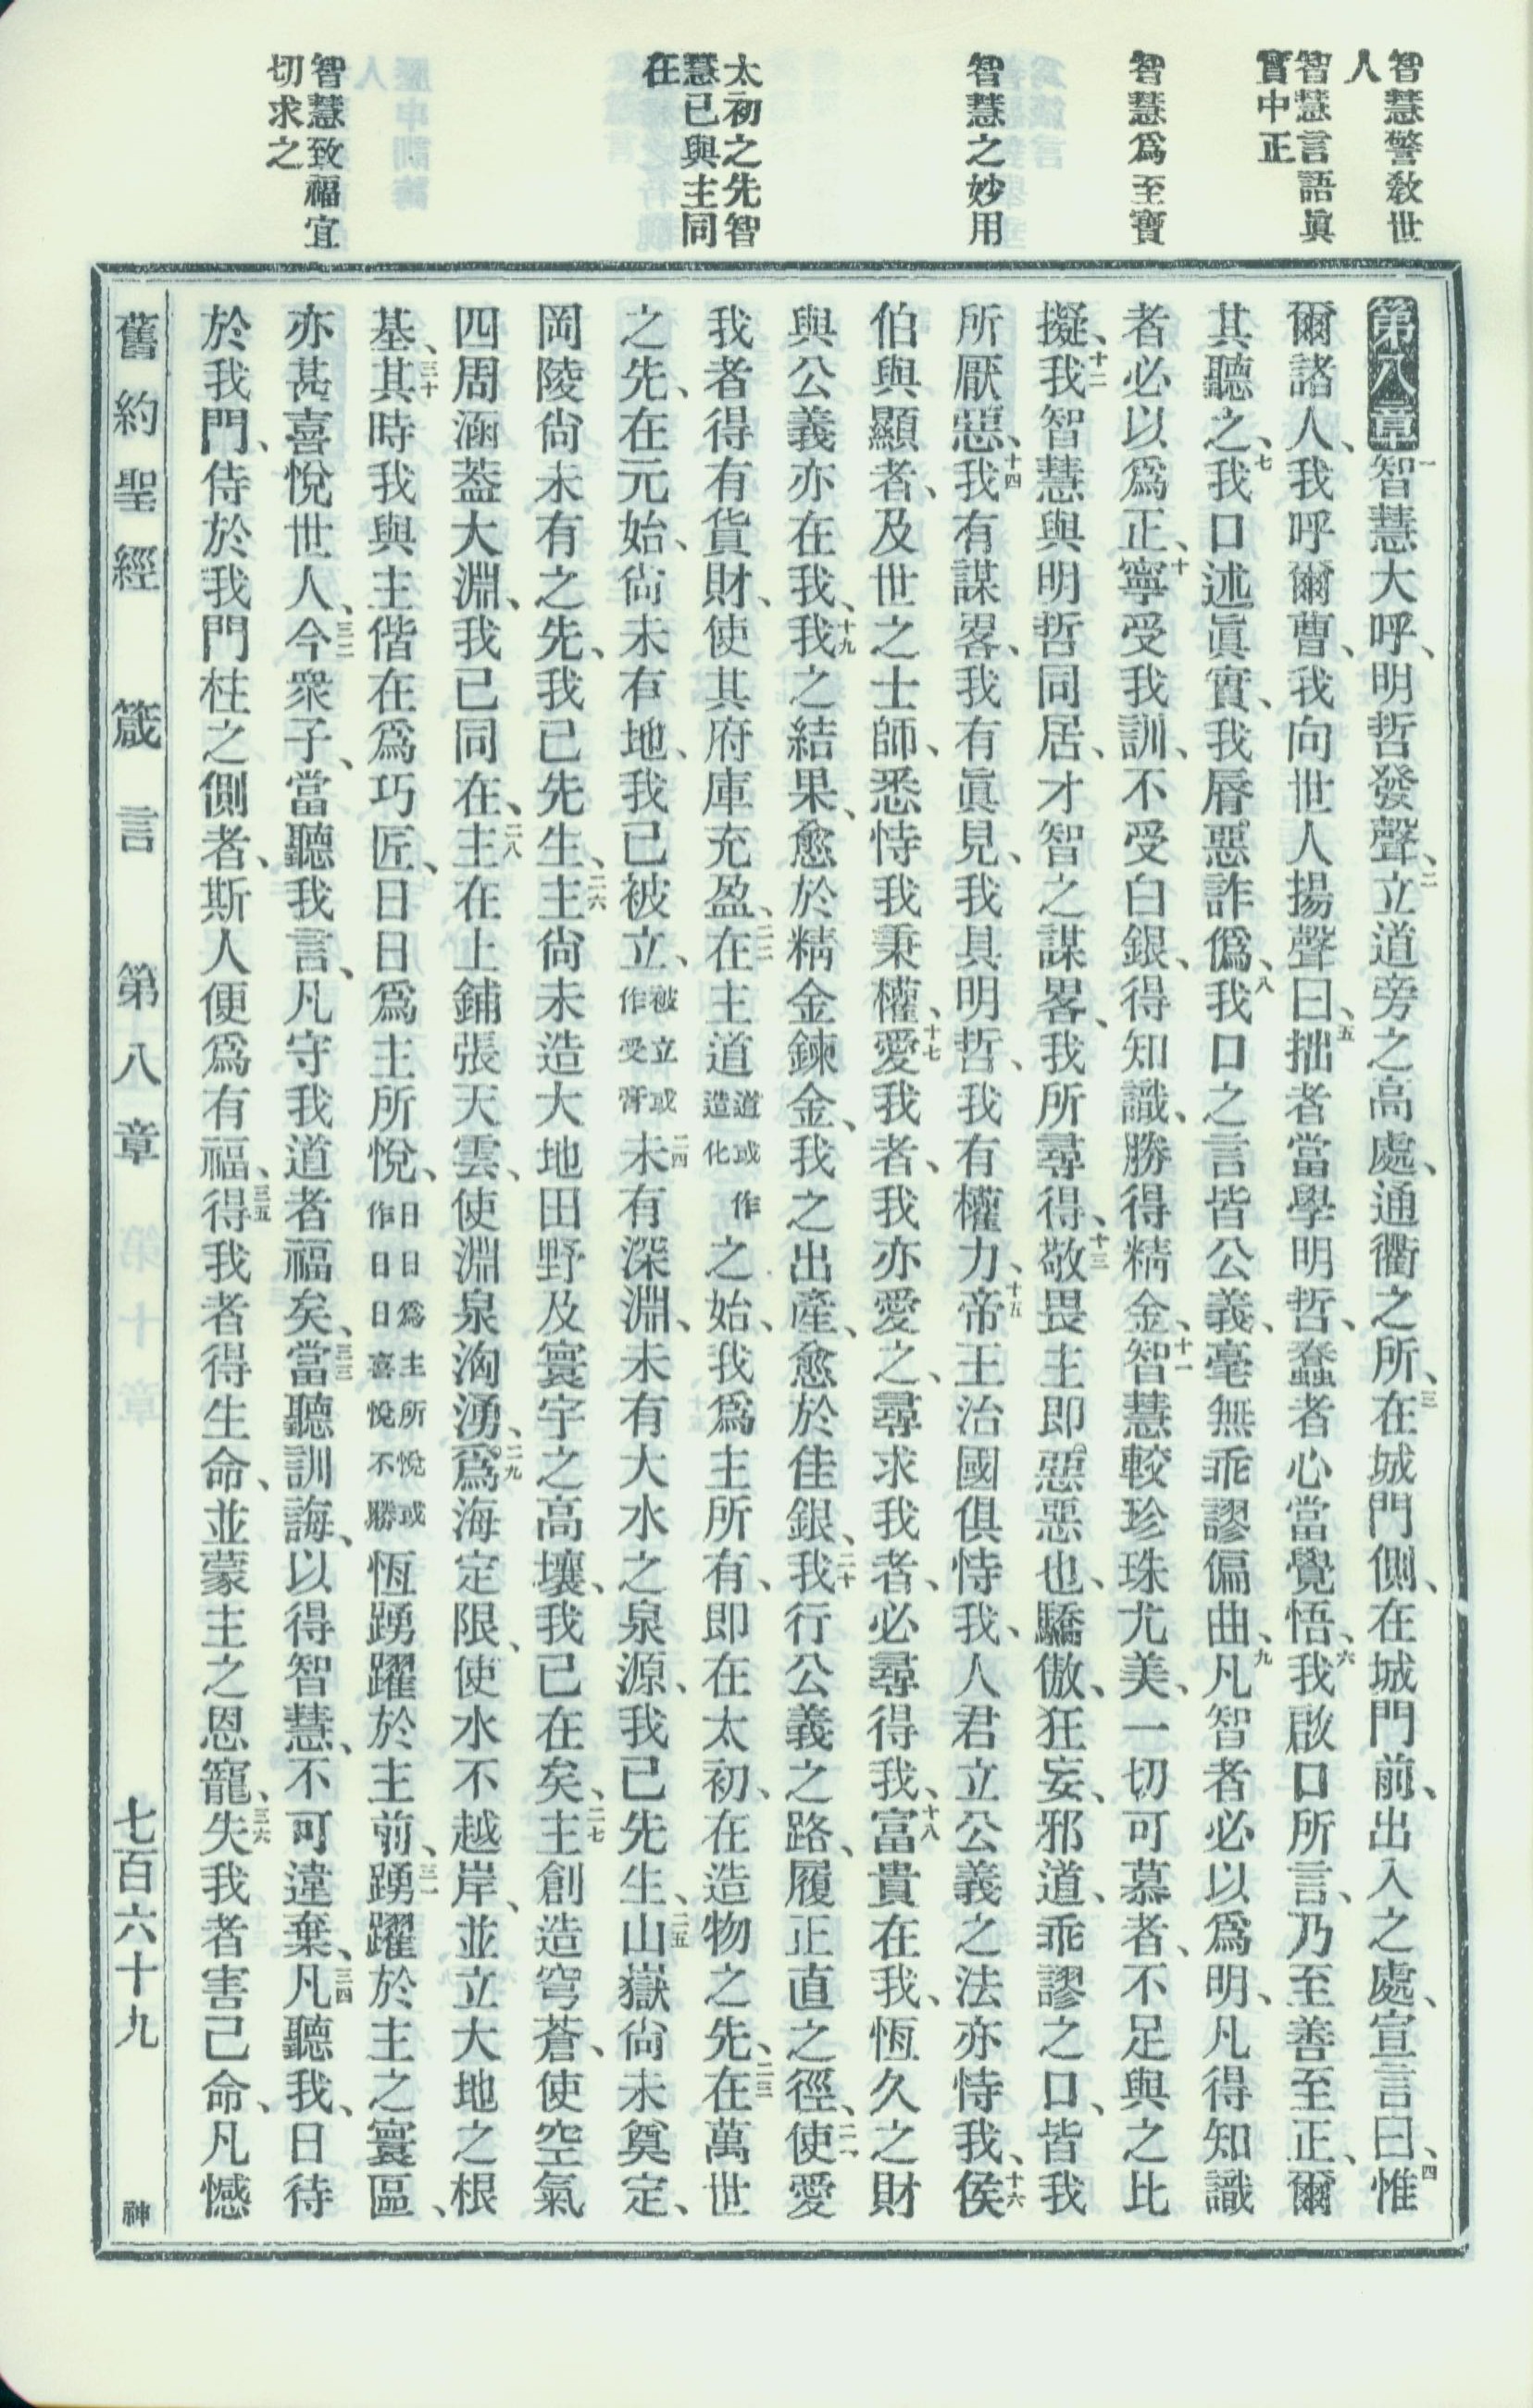 智慧警教世
人
智慧言語眞
實中正
智慧爲至寶
智慧之妙用
太初之先智
慧已與主同
在
智慧致福宜
切求之
第八章一智慧大呼、明哲發聲、二立道旁之高處、通衢之所、三在城門側、在城門前、出入之處、宣言曰、四惟
爾諸人、我呼爾曹、我向世人揚聲曰、五拙者當學明哲、蠢者心當覺悟、六我啟口所言、乃至善至正、爾
其聽之、七我口述眞實、我脣惡詐僞、八我口之言皆公義、毫無乖謬偏曲、九凡智者必以爲明、凡得知識
者必以爲正、十寧受我訓、不受白銀、得知識、勝得精金、十一智慧較珍珠尤美、一切可慕者、不足與之比
擬、十二我智慧與明哲同居、才智之謀畧、我所尋得、十三敬畏主卽惡惡也、驕傲、狂妄、邪道、乖謬之口、皆我
所厭惡、十四我有謀畧、我有眞見、我具明哲、我有權力、十五帝王治國俱恃我、人君立公義之法亦恃我、十六侯
伯與顯者、及世之士師、悉恃我秉權、十七愛我者、我亦愛之、尋求我者、必尋得我、十八富貴在我、恆久之財
與公義亦在我、十九我之結果、愈於精金鍊金、我之出產、愈於佳銀、二十我行公義之路、履正直之徑、二一使愛
我者得有貨財、使其府庫充盈、二二在主道道或作造化之始、我爲主所有、卽在太初、在造物之先、二三在萬世
之先、在元始、尙未有地、我已被立、被立或作受膏二四未有深淵、未有大水之泉源、我已先生、二五山嶽尙未奠定、
岡陵尙未有之先、我已先生、二六主尙未造大地田野及寰宇之高壤、我已在矣、二七主創造穹蒼、使空氣
四周涵蓋大淵、我已同在、二八主在上鋪張天雲、使淵泉洶湧、二九爲海定限、使水不越岸、並立大地之根
基、三十其時我與主偕在爲巧匠、日日爲主所悅、日日爲主所悅或作日日喜悅不勝恆踴躍於主前、三一踴躍於主之寰區、
亦甚喜悅世人、三二今衆子、當聽我言、凡守我道者福矣、三三當聽訓誨、以得智慧、不可違棄、三四凡聽我、日待
於我門、侍於我門柱之側者、斯人便爲有福、三五得我者得生命、並蒙主之恩寵、三六失我者害己命、凡憾
舊約聖經 箴言 第八章 七百六十九 神